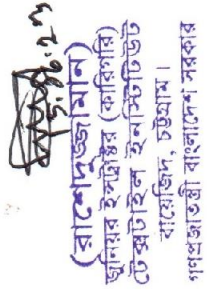 (রাশেদুজ্জামান)
জুনিয়র ইন্সট্রাক্টর (কারিগরি)
টেক্সটাইল ইনস্টিটিউট
বায়েজিদ, চট্টগ্রাম।
গণপ্রজাতন্ত্রী বাংলাদেশ সরকার